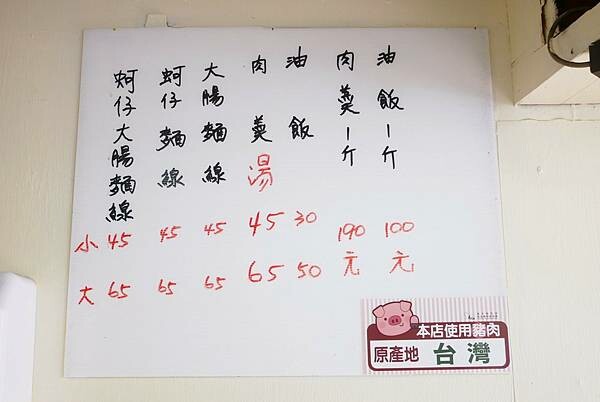 油飯一斤 100元
肉羹一斤 190元
油飯 30 50
肉羹湯 45 65
大腸麵線 45 65
蚵仔麵線 45 65
蚵仔大腸麵線 45 65
小
大
本店使用豬肉
原產地 台灣